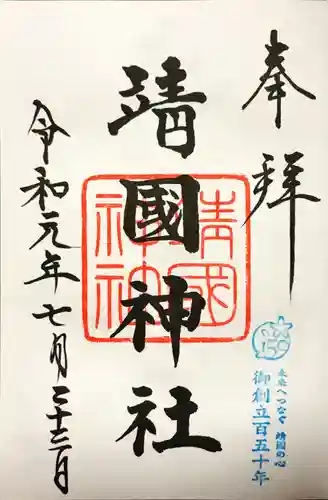 奉拝
靖國神社
靖國神社
令和元年七月二十二日
150
未来へつなぐ 靖國の心
御創立百五十年